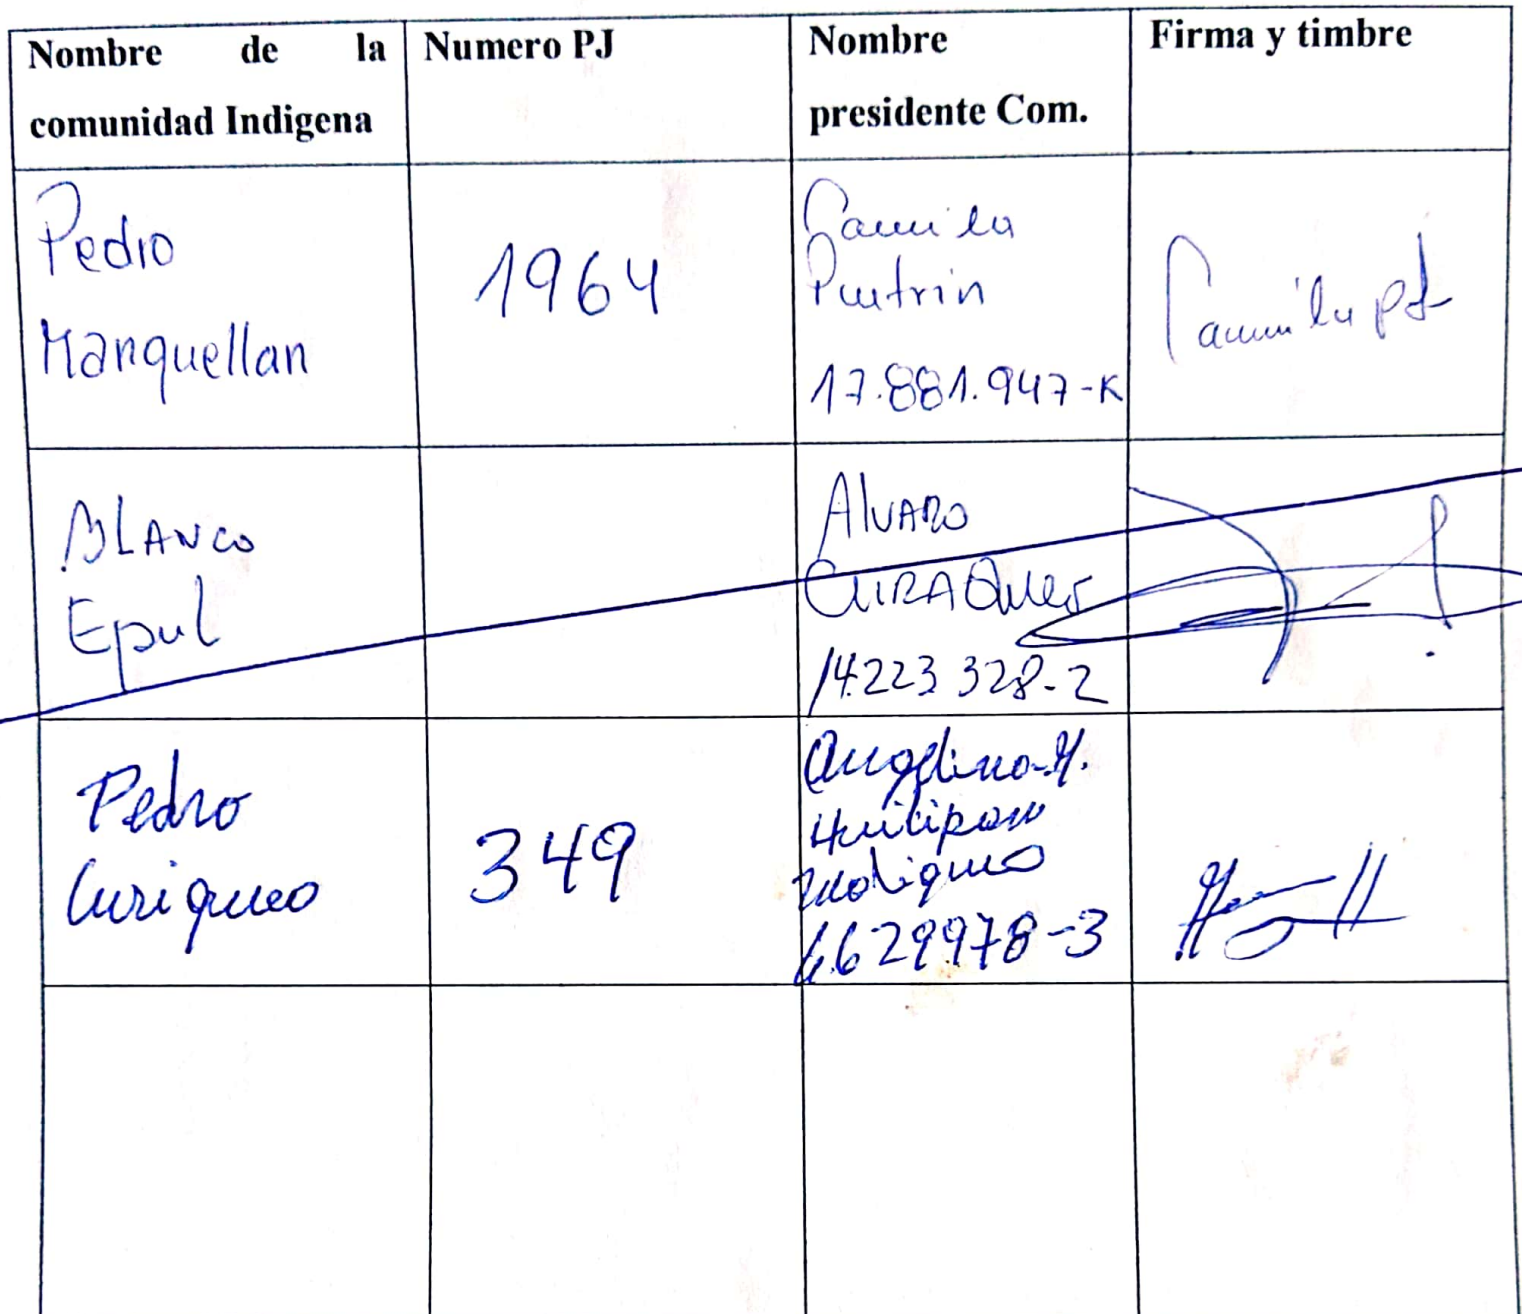 Nombre de la comunidad Indigena
Numero PJ
Nombre presidente Com.
Firma y timbre
Pedro
Manquellan
1964
Camila
Puitrin
17.881.947-K
Camila
BLANCO
Epul
Alvaro
CURAQUEO
14.223 328-2
Pedro
Curiqueo
349
Angelino H.
Huilipan
6.629978-3